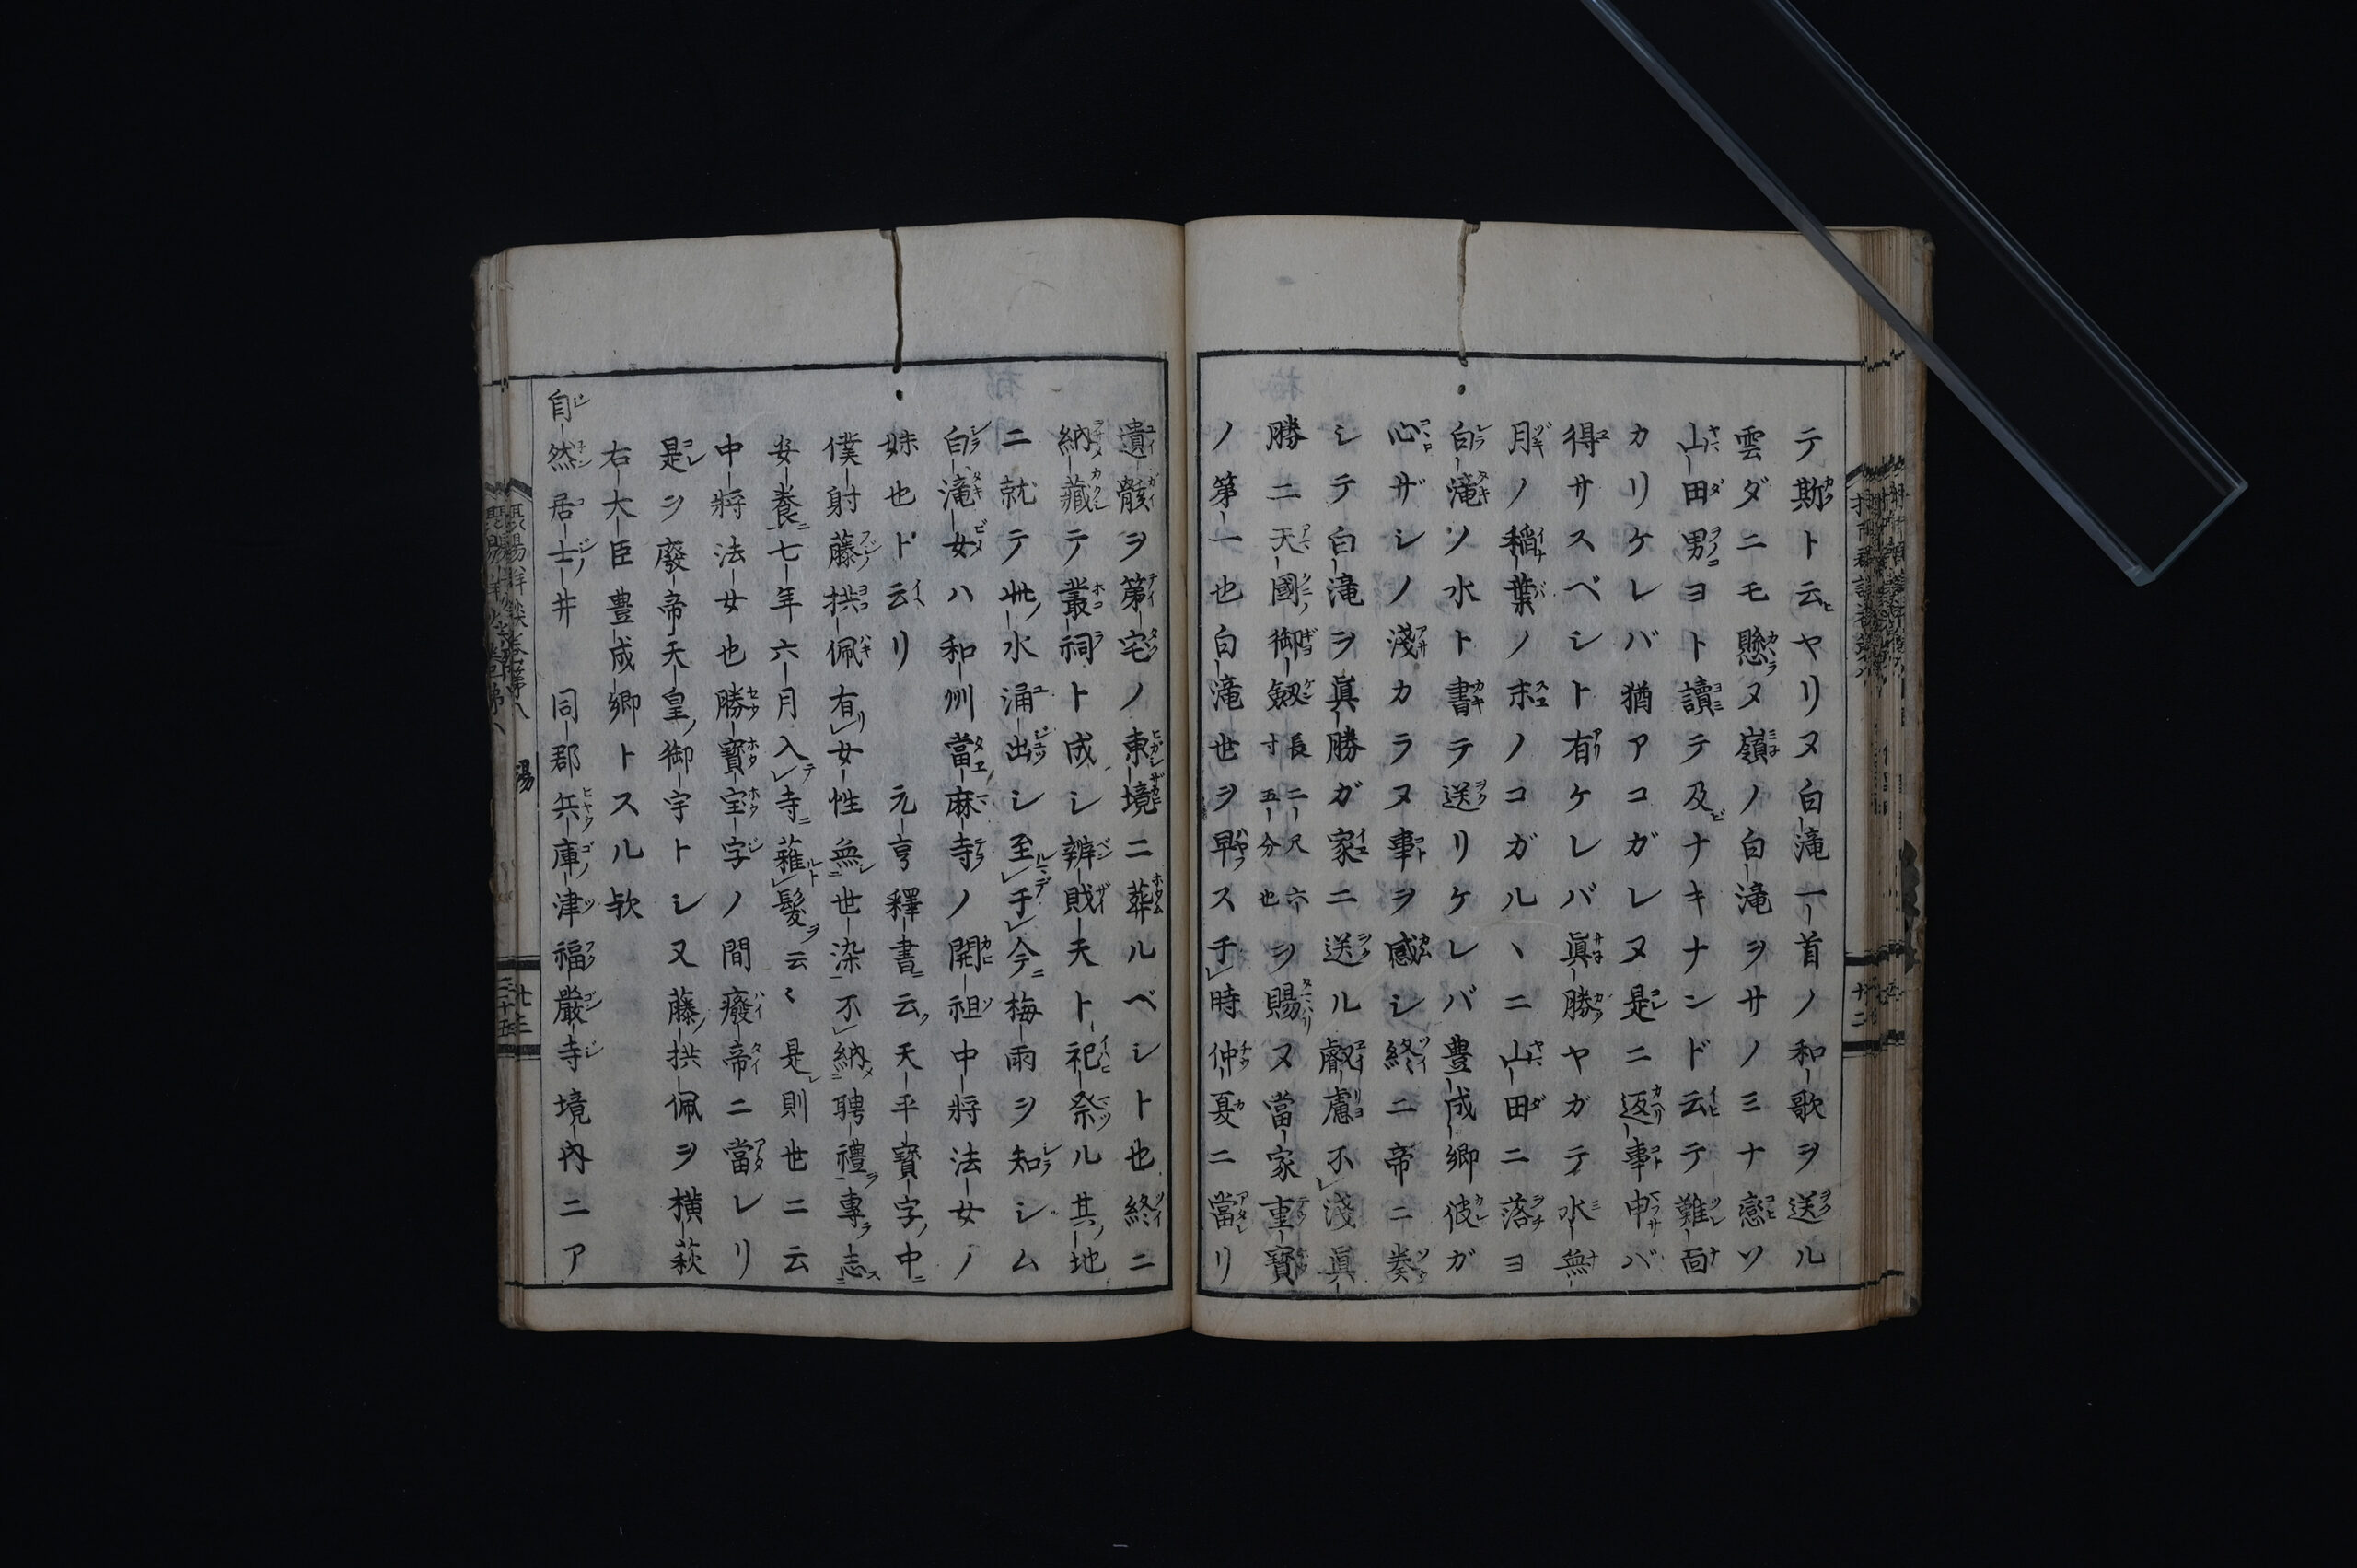 テ斯ト云ヤリヌ白滝一首ノ和歌ヲ送ル
雲ダニモ懸ヌ嶺ノ白滝ヲサノミナ戀ソ
山田男ヨト讀テ及ナキナンド云テ難面
カリケレバ猶アコガレヌ是ニ返事申バ
得サスベシト有ケレバ眞勝ヤガテ水無
月ノ稲葉ノ末ノコガルヽニ山田ニ落ヨ
白滝ソ水ト書テ送リケレバ豊成卿彼ガ
心ザシノ淺カラヌ事ヲ感シ終ニ帝ニ奏
シテ白滝ヲ眞勝ガ家ニ送ル叡慮不淺眞
勝ニ天國御劔長二尺六寸五分也ヲ賜ヌ當家重寳
ノ第一也白滝世ヲ早ス于時仲夏ニ當リ
遺骸ヲ第宅ノ東境ニ葬ルベシト也終ニ
納藏テ叢祠ト成シ辨財天ト祀祭ル其地
ニ就テ此水涌出シ至于今梅雨ヲ知シム
白滝女ハ和州當麻寺ノ開祖中將法女ノ
妹也ト云リ 元亨釋書云天平寳字中
僕射藤拱佩有女性無世染不納聘禮專志
安養七年六月入寺薙髮云々是則世ニ云
中將法女也勝寳宝字ノ間癈帝ニ當レリ
是ヲ廢帝天皇御宇トシ又藤拱佩ヲ横萩
右大臣豊成卿トスル欤
自然居士井 同郡兵庫津福嚴寺境内ニア